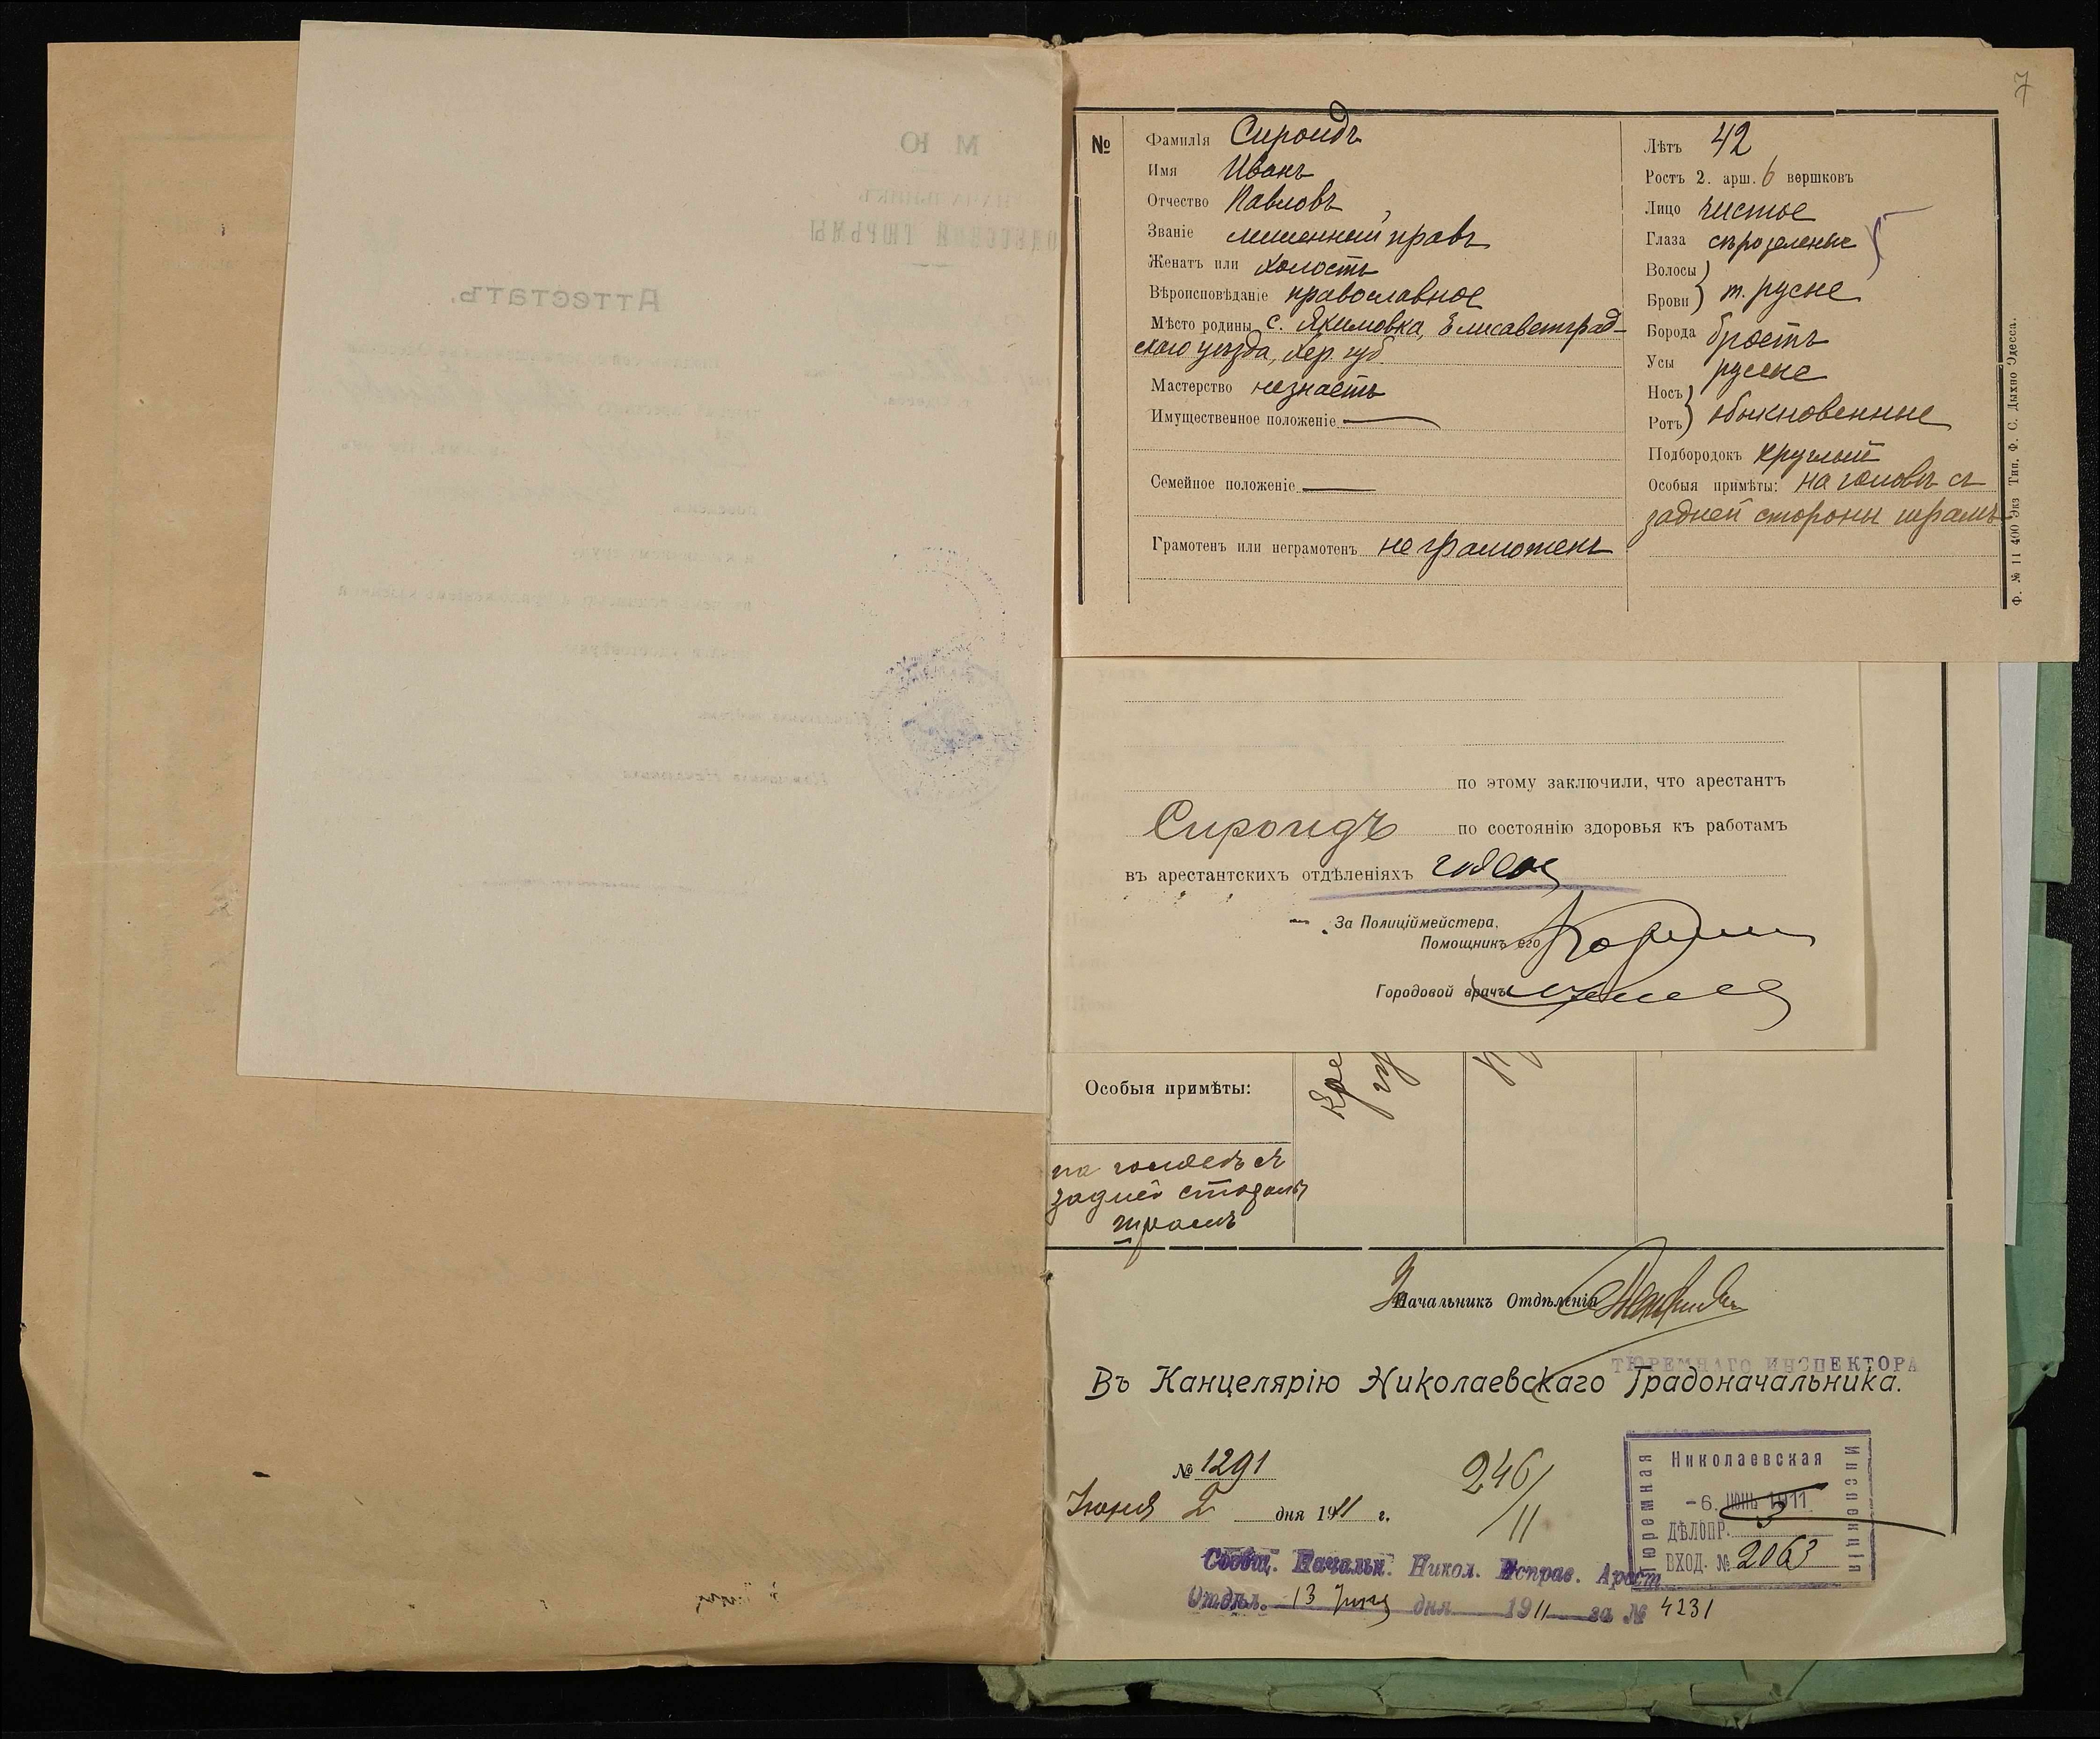 7
№
Фамилія Сироидъ
Имя Иванъ
Отчество Павловъ
Званіе лишенный правъ
Женатъ или холостъ
Вѣроисповѣданіе православное
Мѣсто родины с. Якимовка, Елисаветград-
скаго уѣзда, Хер. губ
Мастерство незнаетъ
Имущественное положеніе
Семейное положеніе
Грамотенъ или неграмотенъ неграмотенъ
Лѣтъ 42
Ростъ 2. арш. 6 вершковъ
Лицо чистое
Глаза сѣрозеленые
Волосы
Брови т. русые
Борода брѣетъ
Усы русые
Носъ
Ротъ обыкновенные
Подбородокъ круглый
Особыя примѣты: на головѣ съ
задней стороны шрамъ
Ф. № 11 400 Экз Тип. Ф. С. Дыхно Одесса.
по этому заключили, что арестантъ
Сироидъ по состоянію здоровья къ работамъ
въ арестантскихъ отдѣленіяхъ годен
За Полиціймейстера,
Помощникъ его
Городовой врачъ
Особыя примѣты:
на головѣ съ
задней стороны
шрамъ
Начальникъ Отдѣленія
ТЮРЕМНАГО ИНСПЕКТОРА
Въ Канцелярію Николаевскаго Градоначальника.
№ 1291
Іюня 2 дня 1911 г.
246/11
Николаевская
Тюремная
Инспекція
-6. ІЮНЬ 1911
ДѢЛОПР. 3
ВХОД. № 2063
Сообщ. Начальн. Никол. Исправ. Арест
Отдѣл. 13 Іюня дня 1911 за № 4231
М Ю
НАЧАЛЬНИКЪ
ОДЕССКОЙ ТЮРЬМЫ
Аттестатъ.